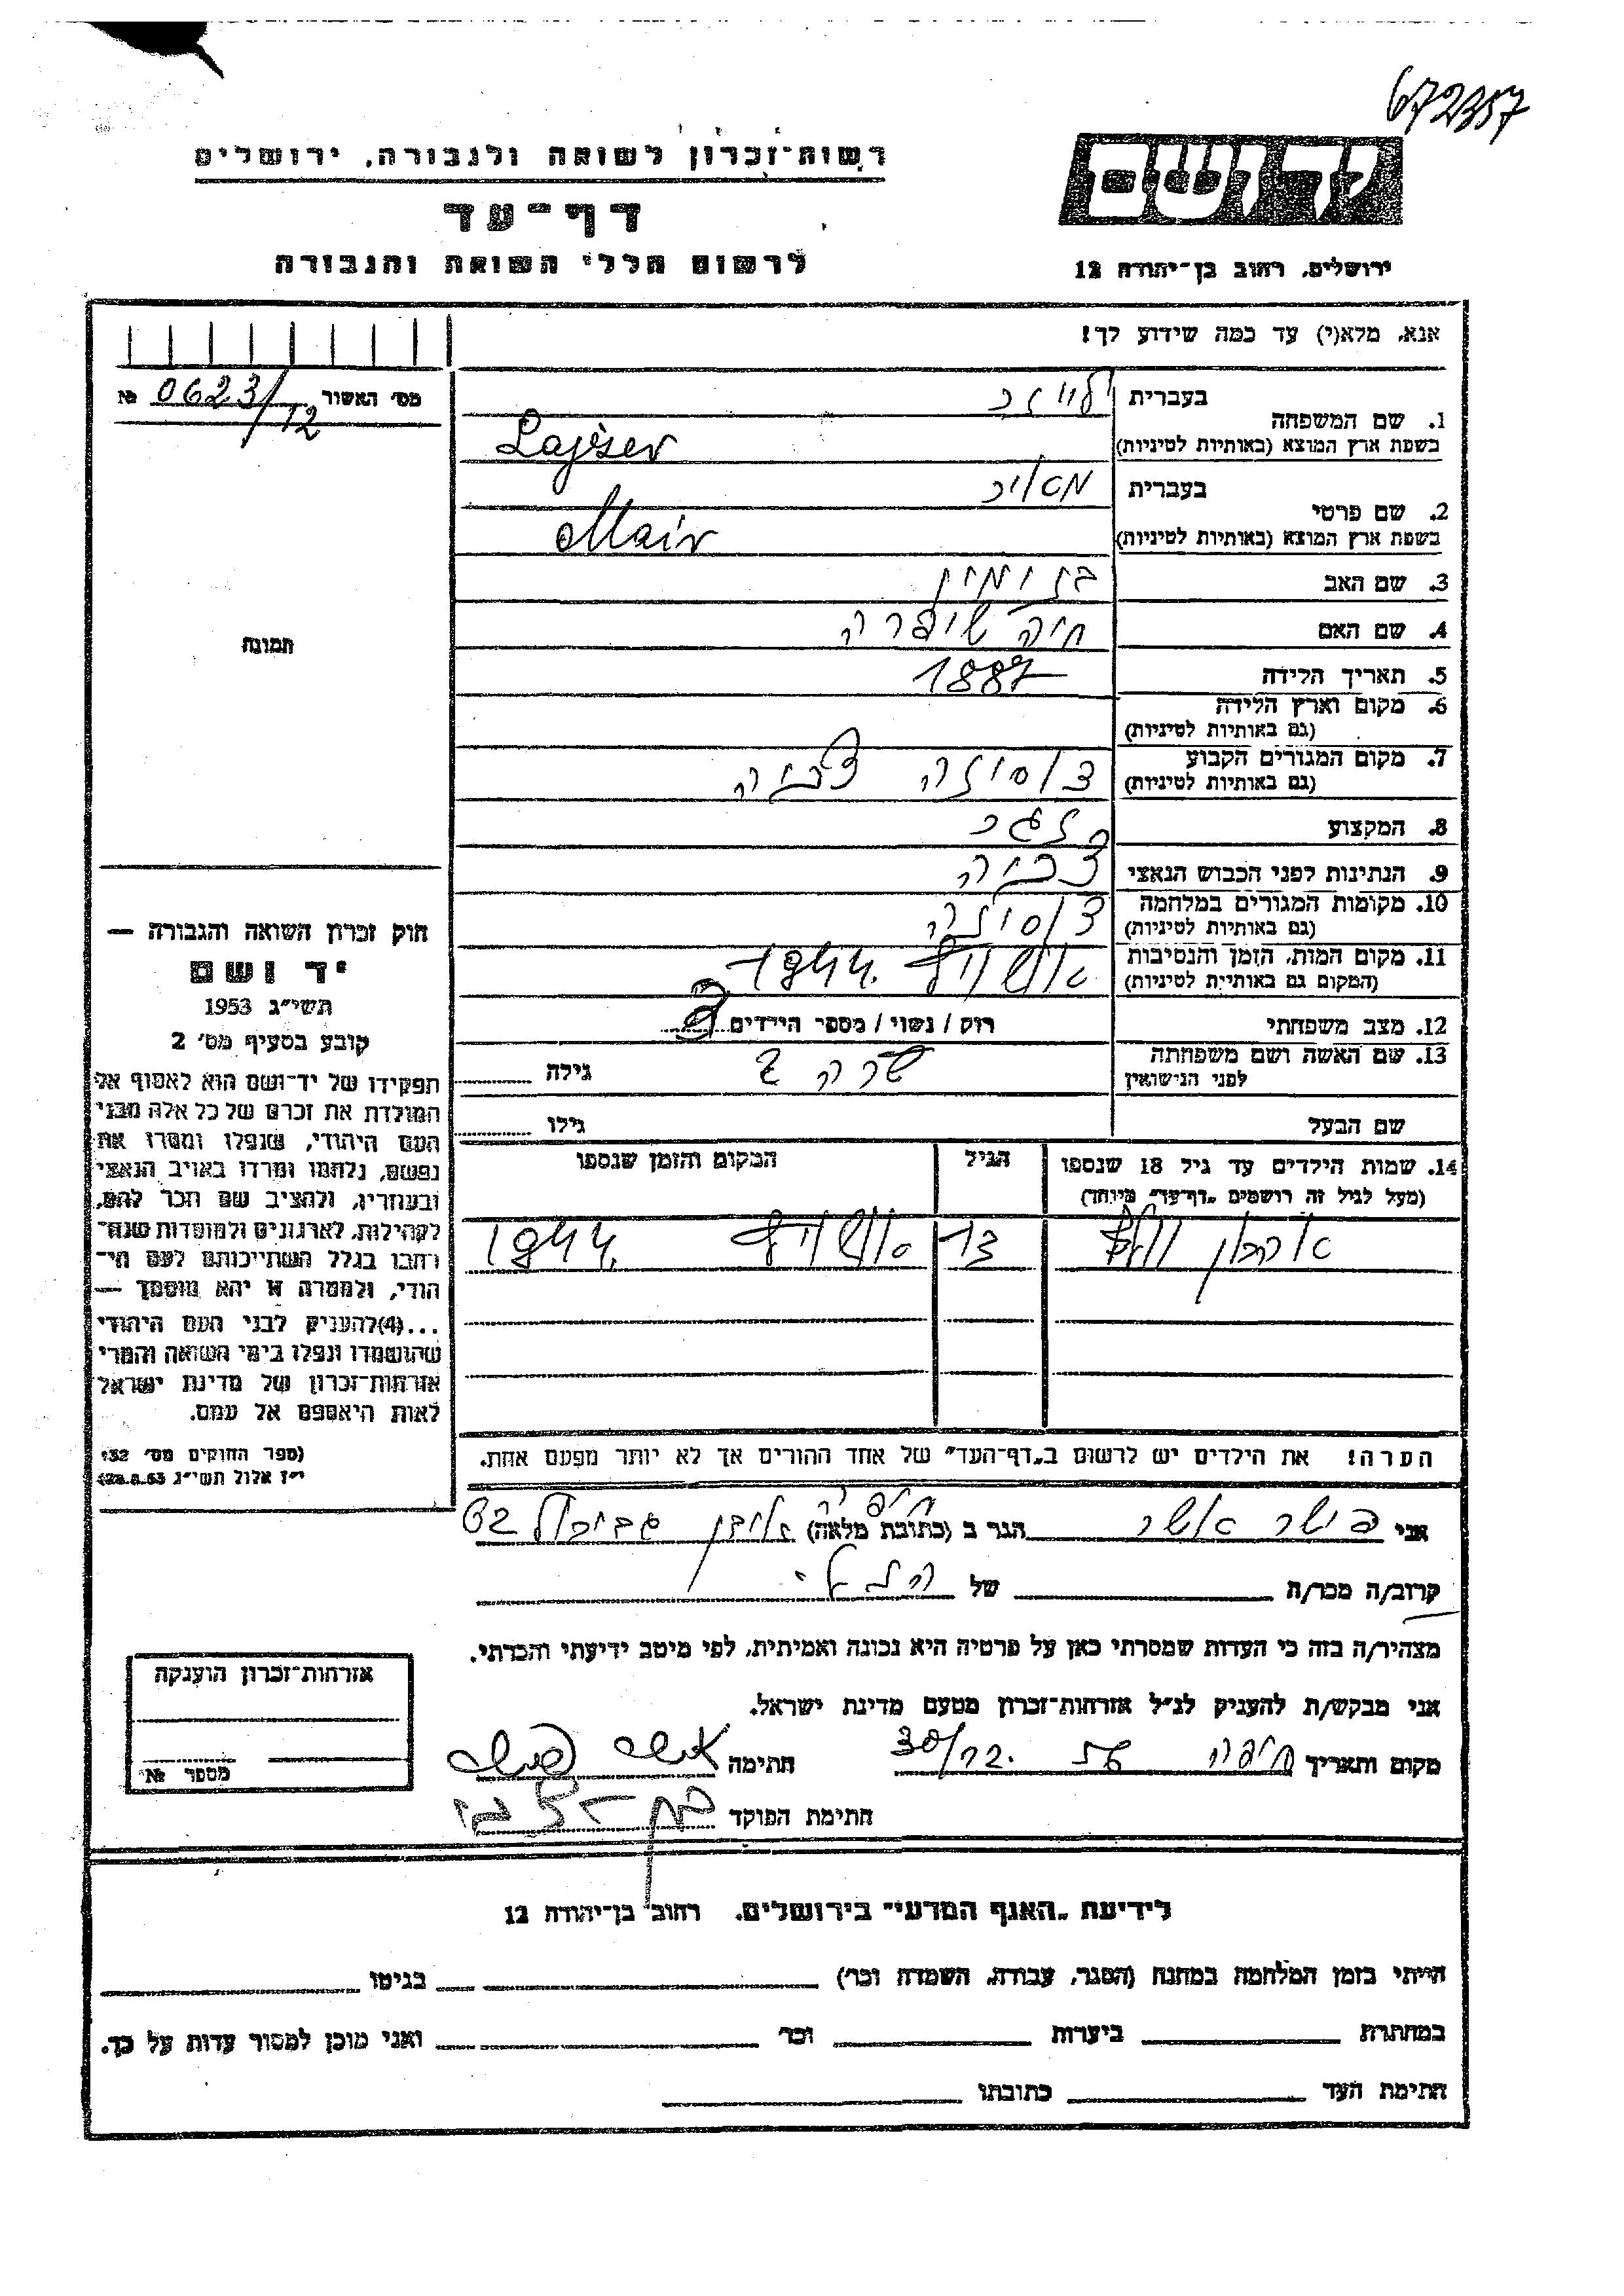 672357
רשות־זכרון לשואה ולגבורה, ירושלים
דף־עד
לרשום חללי השואה והגבורה
יד ושם
ירושלים, רחוב בן־יהודה 12
אנא, מלא(י) עד כמה שידוע לך!
מס׳ האשור № 0623/12
1. שם המשפחה
בעברית
בשפת ארץ המוצא (באותיות לטיניות) Lajzer
2. שם פרטי
בעברית מאיר
בשפת ארץ המוצא (באותיות לטיניות) Mair
3. שם האב בנימין
4. שם האם חיה שיפרה
5. תאריך הלידה 1887
6. מקום וארץ הלידה
(גם באותיות לטיניות)
7. מקום המגורים הקבוע
(גם באותיות לטיניות)
8. המקצוע
9. הנתינות לפני הכבוש הנאצי
10. מקומות המגורים במלחמה
(גם באותיות לטיניות)
11. מקום המות, הזמן והנסיבות 1944.
(המקום גם באותיות לטיניות)
12. מצב משפחתי רוק / נשוי / מספר הילדים
13. שם האשה ושם משפחתה שרה גילה
לפני הנישואין
שם הבעל גילו
14. שמות הילדים עד גיל 18 שנספו הגיל המקום והזמן שנספו
(מעל לגיל זה רושמים „דף־עד״ מיוחד)
13 1944.
הערה! את הילדים יש לרשום ב„דף־העד״ של אחד ההורים אך לא יותר מפעם אחת.
תמונה
חוק זכרון השואה והגבורה —
יד ושם
תשי״ג 1953
קובע בסעיף מס׳ 2
תפקידו של יד־ושם הוא לאסוף אל
המולדת את זכרם של כל אלה מבני
העם היהודי, שנפלו ומסרו את
נפשם, נלחמו ומרדו באויב הנאצי
ובעוזריו, ולהציב שם וזכר להם,
לקהילות, לארגונים ולמוסדות שנח־
רבו בגלל השתייכותם לעם הי־
הודי, ולמטרה זו יהא מוסמך —
...(4) להעניק לבני העם היהודי
שהושמדו ונפלו בימי השואה והמרי
אזרחות־זכרון של מדינת ישראל
לאות היאספם אל עמם.
(ספר החוקים מס׳ 132
י״ז אלול תשי״ג 28.8.53)
אני אשר הגר ב (כתובת מלאה) חיפה אבן גבירול 62
קרוב/ה מכר/ה של
מצהיר/ה בזה כי העדות שמסרתי כאן על פרטיה היא נכונה ואמיתית, לפי מיטב ידיעתי והכרתי.
אני מבקש/ת להעניק לנ״ל אזרחות־זכרון מטעם מדינת ישראל.
מקום ותאריך חיפה חתימה
חתימת הפוקד
אזרחות־זכרון הוענקה
מספר №
לידיעת „האגף המדעי״ בירושלים, רחוב בן־יהודה 12
הייתי בזמן המלחמה במחנה (הסגר, עבודה, השמדה וכר׳) בגיטו
במחתרת ביערות וכר׳ ואני מוכן למסור עדות על כך.
חתימת העד כתובתו